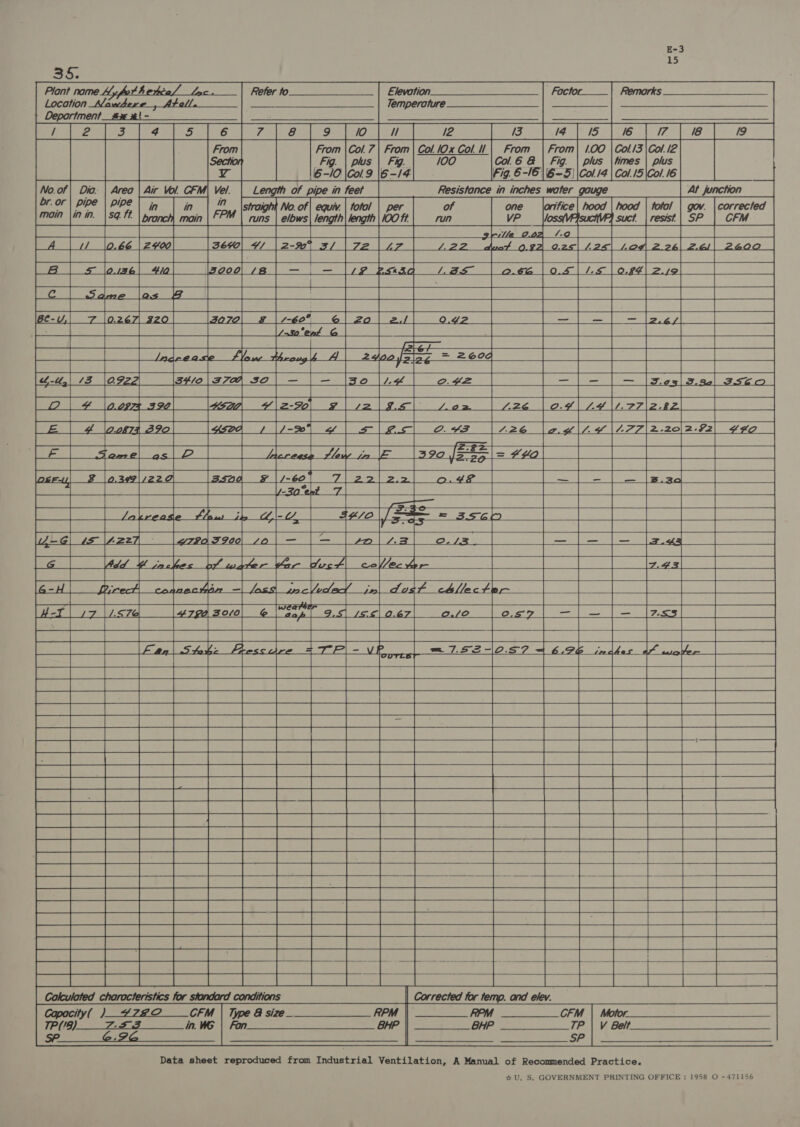 E-3
15
35.
Plant name Hypothetical Inc. Refer to Elevation Factor Remarks
Location Nowhere, Atall. Temperature
Department #x x! -
1 2 3 4 5 6 7 8 9 10 11 12 13 14 15 16 17 18 19
From Section V From Fig. 6-10 Col. 7 plus Col. 9 From Fig. 6-14 Col. 10 x Col. 11 100 From Col. 6 & Fig. 6-16 From Fig. 6-5 1.00 plus Col. 14 Col. 13 times Col. 15 Col. 12 plus Col. 16
No. of br. or main Dia. pipe in in. Area pipe sq. ft. Air Vol. CFM in branch in main Vel. in FPM Length of pipe in feet straight runs No. of elbws equiv. length total length Resistance in inches water gauge per 100 ft. of run one VP orifice loss(VP) hood suct(VP) hood suct. total resist. At junction gov. SP corrected CFM
grille 0.02 1.0
A 11 0.66 2400 3640 41 2-90° 31 72 1.7 1.22 duct 0.82 0.25 1.25 1.04 2.26 2.61 2600
B 5 0.136 410 3000 18 — — 18 1.35 0.56 0.5 1.5 0.84 2.19
C Same as B
BC-U, 7 0.267 820 3070 8 1-60° 6 20 2.1 0.42 — — — 2.61
1-30°ent 6
Increase flow through A 2400 √2.61/2.26 = 2600
U₁-U₂ 13 0.922 3410 3700 30 — — 30 1.4 0.42 — — — 3.03 3.30 3560
D 4 0.0873 390 4500 4 2-90° 8 12 8.5 1.02 1.26 0.4 1.4 1.77 2.82
E 4 0.0873 390 4500 1 1-90° 4 5 8.5 0.43 1.26 0.4 1.4 1.77 2.20 2.82 440
F Same as D Increase flow in E 390 √2.82/2.20 = 440
DEF-U₂ 8 0.349 1220 3500 8 1-60° 7 22 2.2 0.48 — — — 3.30
1-30°ent 7
Increase flow in U₁-U₂ 3410 √3.30/3.03 = 3560
U₂-G 15 1.227 4780 3900 10 — — 10 1.3 0.13 — — — 3.43
G Add 4 inches of water for dust collector 7.43
G-H Direct connection - loss included in dust collector
H-I 17 1.576 4780 3010 6 weather cap 9.5 15.5 0.67 0.10 0.57 — — — 7.53
Fan Static Pressure = TP - VP OUTLET = 7.53 - 0.57 = 6.96 inches of water
Calculated characteristics for standard conditions Corrected for temp. and elev.
Capacity( ) 4780 CFM Type & size RPM RPM CFM Motor
TP(19) 7.53 in. WG Fan BHP BHP TP V Belt
SP 6.96 SP
Data sheet reproduced from Industrial Ventilation, A Manual of Recommended Practice.
☆ U. S. GOVERNMENT PRINTING OFFICE : 1958 O - 471156